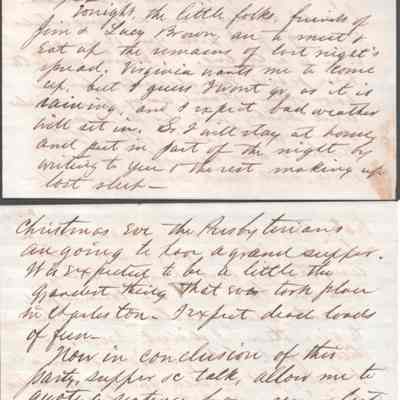 Tonight, the little folks, friends of
Jim & Lucy Brown, are a meet &
eat up the remains of last night's
spread. Virginia wants me to come
up. but I guess I wont go, as it is
raining, and I expect bad weather
will set in. So I will stay at home
and put in part of the night by
writing to you & the rest making up
lost sleep —
Christmas Eve the Presbyterians
are going to have a grand supper.
It is expected to be a little the
grandest thing that ever took place
in Charleston. I expect dead loads
of fun —
Now in conclusion of this
party, supper &c talk, allow me to
quote a sentence from